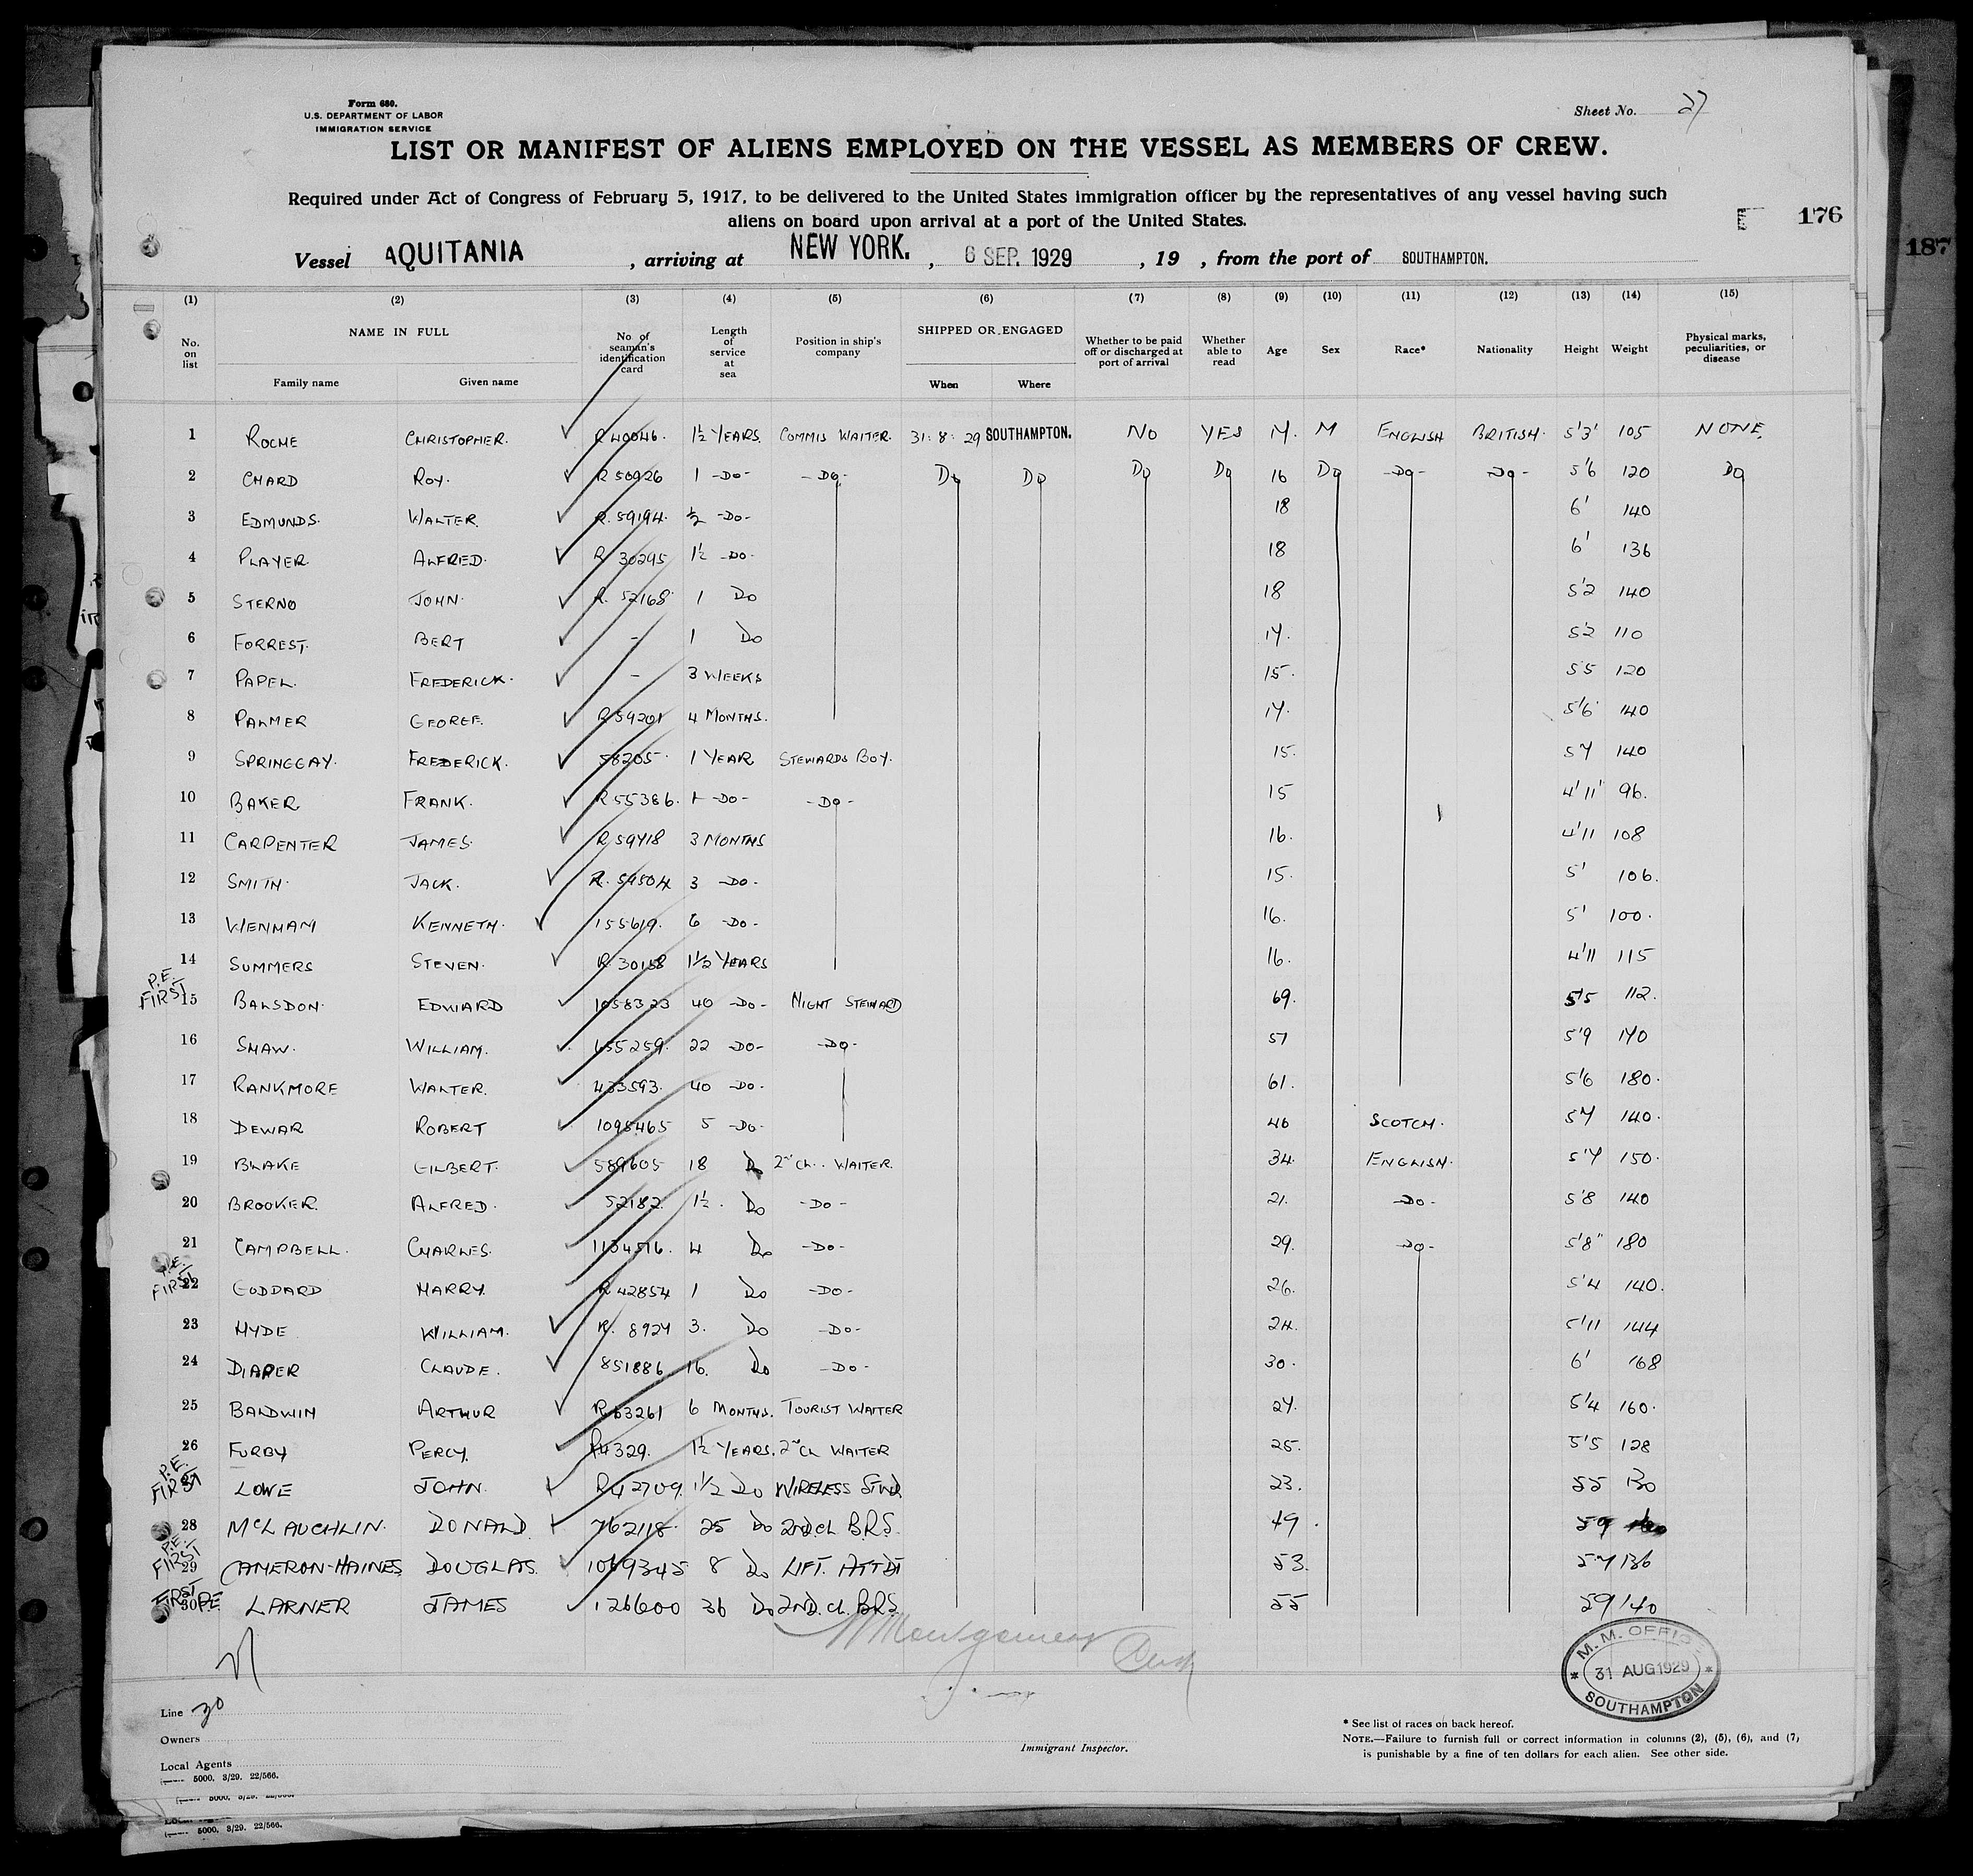 Form 680.
U.S. DEPARTMENT OF LABOR
IMMIGRATION SERVICE
Sheet No. 27
LIST OR MANIFEST OF ALIENS EMPLOYED ON THE VESSEL AS MEMBERS OF CREW.
Required under Act of Congress of February 5, 1917, to be delivered to the United States immigration officer by the representatives of any vessel having such
aliens on board upon arrival at a port of the United States.
176
187
Vessel AQUITANIA , arriving at NEW YORK. , 6 SEP. 1929 , 19 , from the port of SOUTHAMPTON.
(1) (2) (3) (4) (5) (6) (7) (8) (9) (10) (11) (12) (13) (14) (15)
No. on list NAME IN FULL Family name Given name No of seaman's identification card Length of service at sea Position in ship's company SHIPPED OR ENGAGED When Where Whether to be paid off or discharged at port of arrival Whether able to read Age Sex Race* Nationality Height Weight Physical marks, peculiarities, or disease
1 ROCHE CHRISTOPHER. R 40046. 1½ YEARS. COMMIS WAITER. 31. 8. 29 SOUTHAMPTON. NO YES M ENGLISH BRITISH. 5'3' 105 NONE.
2 CHARD ROY. R 50926 1 -DO- -DO- Do Do Do Do 16 Do -DO- -DO- 5'6 120 Do
3 EDMUNDS. WALTER. R. 59194. ½ -DO- 18 6' 140
4 PLAYER. ALFRED. R 30295 1½ -DO- 18 6' 136
5 STERNO JOHN. R. 52168 1 Do 18 5'2 140
6 FORREST. BERT - 1 Do 17. 5'2 110
7 PAPEL. FREDERICK. - 3 WEEKS 15. 5'5 120
8 PALMER GEORGE. R 59201 4 MONTHS. 17. 5'6 140
9 SPRINGGAY. FREDERICK. 58205. 1 YEAR STEWARDS BOY. 15. 5'7 140
10 BAKER FRANK. R 55386. 1 -DO- -DO- 15 4'11 96.
11 CARPENTER JAMES. R 59718 3 MONTHS 16. 4'11 108
12 SMITH. JACK. R. 59504 3 -DO- 15. 5' 106.
13 WENMAN KENNETH. 155619. 6 -DO- 16. 5' 100.
14 SUMMERS STEVEN. R 30158 1½ YEARS 16. 4'11 115
P.E. FIRST
15 BALSDON. EDWARD 1058323 40 -DO- NIGHT STEWARD 69. 5'5 112.
16 SHAW. WILLIAM. 655259. 22 -DO- -DO- 57 5'9 170
17 RANKMORE WALTER. 433593. 40 -DO- 61. 5'6 180.
18 DEWAR ROBERT 1095465 5 -DO- 46 SCOTCH. 5'7 140.
19 BLAKE GILBERT. 589605 18 Do 2nd CL. WAITER. 34. ENGLISH. 5'7 150.
20 BROOKER. ALFRED. 52182. 1½. Do -DO- 21. -DO- 5'8 140
21 CAMPBELL. CHARLES. 1134516. 4 Do -DO- 29. -DO- 5'8" 180
P.E. FIRST
22 GODDARD HARRY. R 42854 1 Do -DO- 26. 5'4 140.
23 HYDE WILLIAM. R. 8927 3. Do -DO- 24. 5'11 144
24 DIAPER CLAUDE. 851886 16. Do -DO- 30. 6' 168
25 BALDWIN ARTHUR R63261 6 MONTHS. TOURIST WAITER 27. 5'4 160.
26 FURBY PERCY. R4329. 1½ YEARS. 2nd CL WAITER 25. 5'5 128
P.E. FIRST
27 LOWE JOHN. R42709. 1½ Do WIRELESS STWD 23. 55 130
28 McLAUCHLIN. DONALD. 762118. 25 Do 2ND.CL B.R.S. 49. 59
P.E. FIRST
29 CAMERON-HAINES DOUGLAS. 1069345 8 Do LIFT. ATTDT 53. 57 136
FIRST P.E.
30 LARNER JAMES 126600 36 Do 2ND. CL. B.R.S. 55 59 140
M.M. OFFICE
31 AUG 1929
SOUTHAMPTON
Line 30
Owners
Local Agents
5000. 3/29. 22/566.
Immigrant Inspector.
* See list of races on back hereof.
NOTE.—Failure to furnish full or correct information in columns (2), (5), (6), and (7)
is punishable by a fine of ten dollars for each alien. See other side.
5000, 3/29. 22/566.